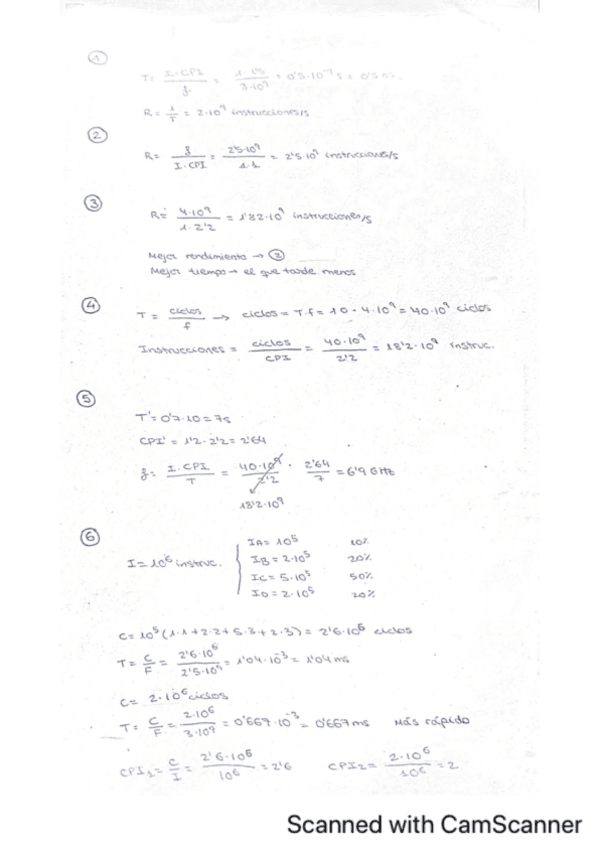 ①
T = I·CPI / f = 1·1'5 / 3·10⁹ = 0'5·10⁻⁹ s = 0'5 ns.
R = 1/T = 2·10⁹ instrucciones/s
②
R = f / I·CPI = 2'5·10⁹ / 1·1 = 2'5·10⁹ instrucciones/s
③
R = 4·10⁹ / 1·2'2 = 1'82·10⁹ instrucciones/s
Mejor rendimiento → ②
Mejor tiempo → el que tarde menos
④
T = ciclos / f → ciclos = T·f = 10·4·10⁹ = 40·10⁹ ciclos
Instrucciones = ciclos / CPI = 40·10⁹ / 2'2 = 18'2·10⁹ instruc.
⑤
T' = 0'7·10 = 7s
CPI' = 1'2·2'2 = 2'64
f = I·CPI / T = 40·10⁹ / 2'2 · 2'64 / 7 = 6'9 GHz
18'2·10⁹
⑥
I = 10⁶ instruc.
IA = 10⁵ 10%
IB = 2·10⁵ 20%
IC = 5·10⁵ 50%
ID = 2·10⁵ 20%
C = 10⁵ (1·1 + 2·2 + 5·3 + 2·3) = 2'6·10⁶ ciclos
T = C/F = 2'6·10⁶ / 2'5·10⁹ = 1'04·10⁻³ = 1'04 ms
C = 2·10⁶ ciclos
T = C/F = 2·10⁶ / 3·10⁹ = 0'667·10⁻³ = 0'667 ms Más rápido
CPI₁ = C/I = 2'6·10⁶ / 10⁶ = 2'6 CPI₂ = 2·10⁶ / 10⁶ = 2
Scanned with CamScanner